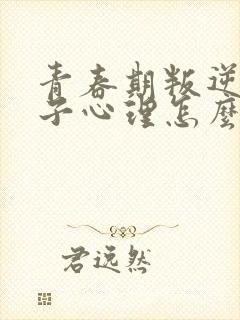 青春期叛逆
子心理怎麼
君逸然